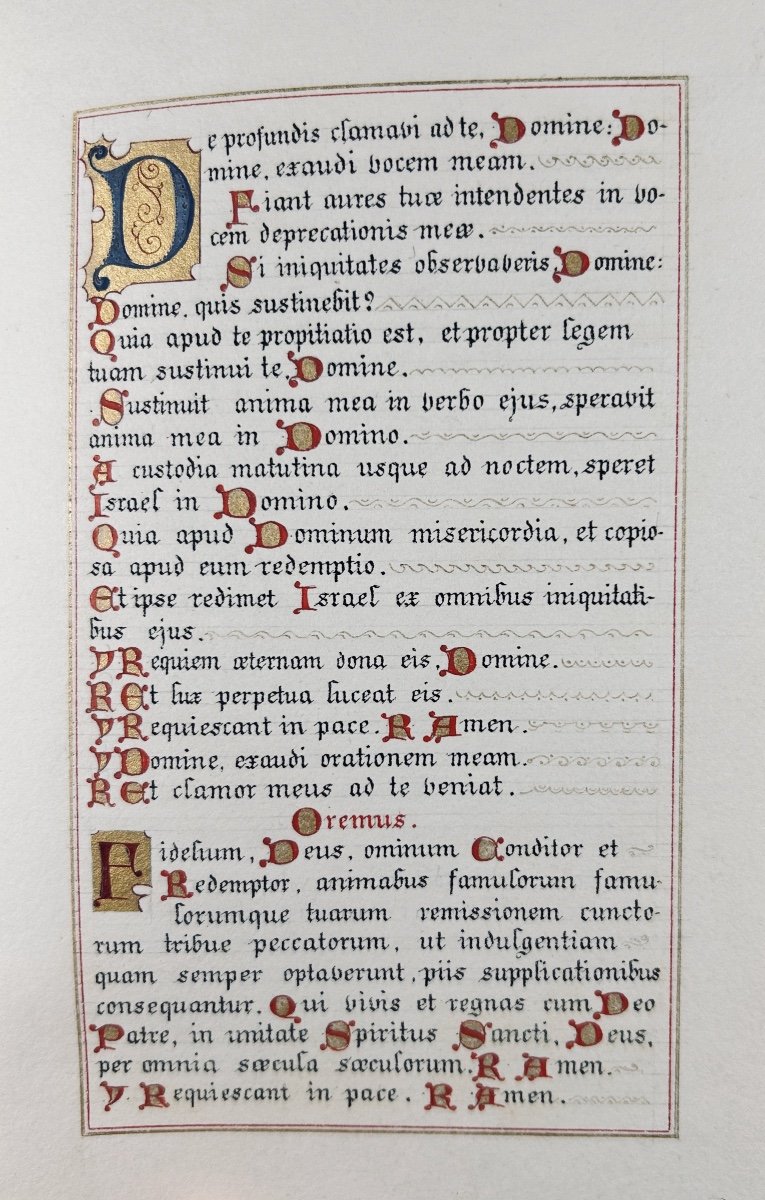 De profundis clamavi ad te, Domine: Do-
mine, exaudi vocem meam.
Fiant aures tuæ intendentes in vo-
cem deprecationis meæ.
Si iniquitates observaveris, Domine:
Domine, quis sustinebit?
Quia apud te propitiatio est, et propter legem
tuam sustinui te, Domine.
Sustinuit anima mea in verbo ejus, speravit
anima mea in Domino.
A custodia matutina usque ad noctem, speret
Israel in Domino.
Quia apud Dominum misericordia, et copio-
sa apud eum redemptio.
Et ipse redimet Israel ex omnibus iniquitati-
bus ejus.
℣ Requiem æternam dona eis, Domine.
℟ Et lux perpetua luceat eis.
℣ Requiescant in pace. ℟ Amen.
℣ Domine, exaudi orationem meam.
℟ Et clamor meus ad te veniat.
Oremus.
Fidelium, Deus, ominum Conditor et
Redemptor, animabus famulorum famu-
lorumque tuarum remissionem cuncto-
rum tribue peccatorum, ut indulgentiam
quam semper optaverunt, piis supplicationibus
consequantur. Qui vivis et regnas cum Deo
Patre, in unitate Spiritus Sancti, Deus,
per omnia sæcula sæculorum. ℟ Amen.
℣. Requiescant in pace. ℟ Amen.